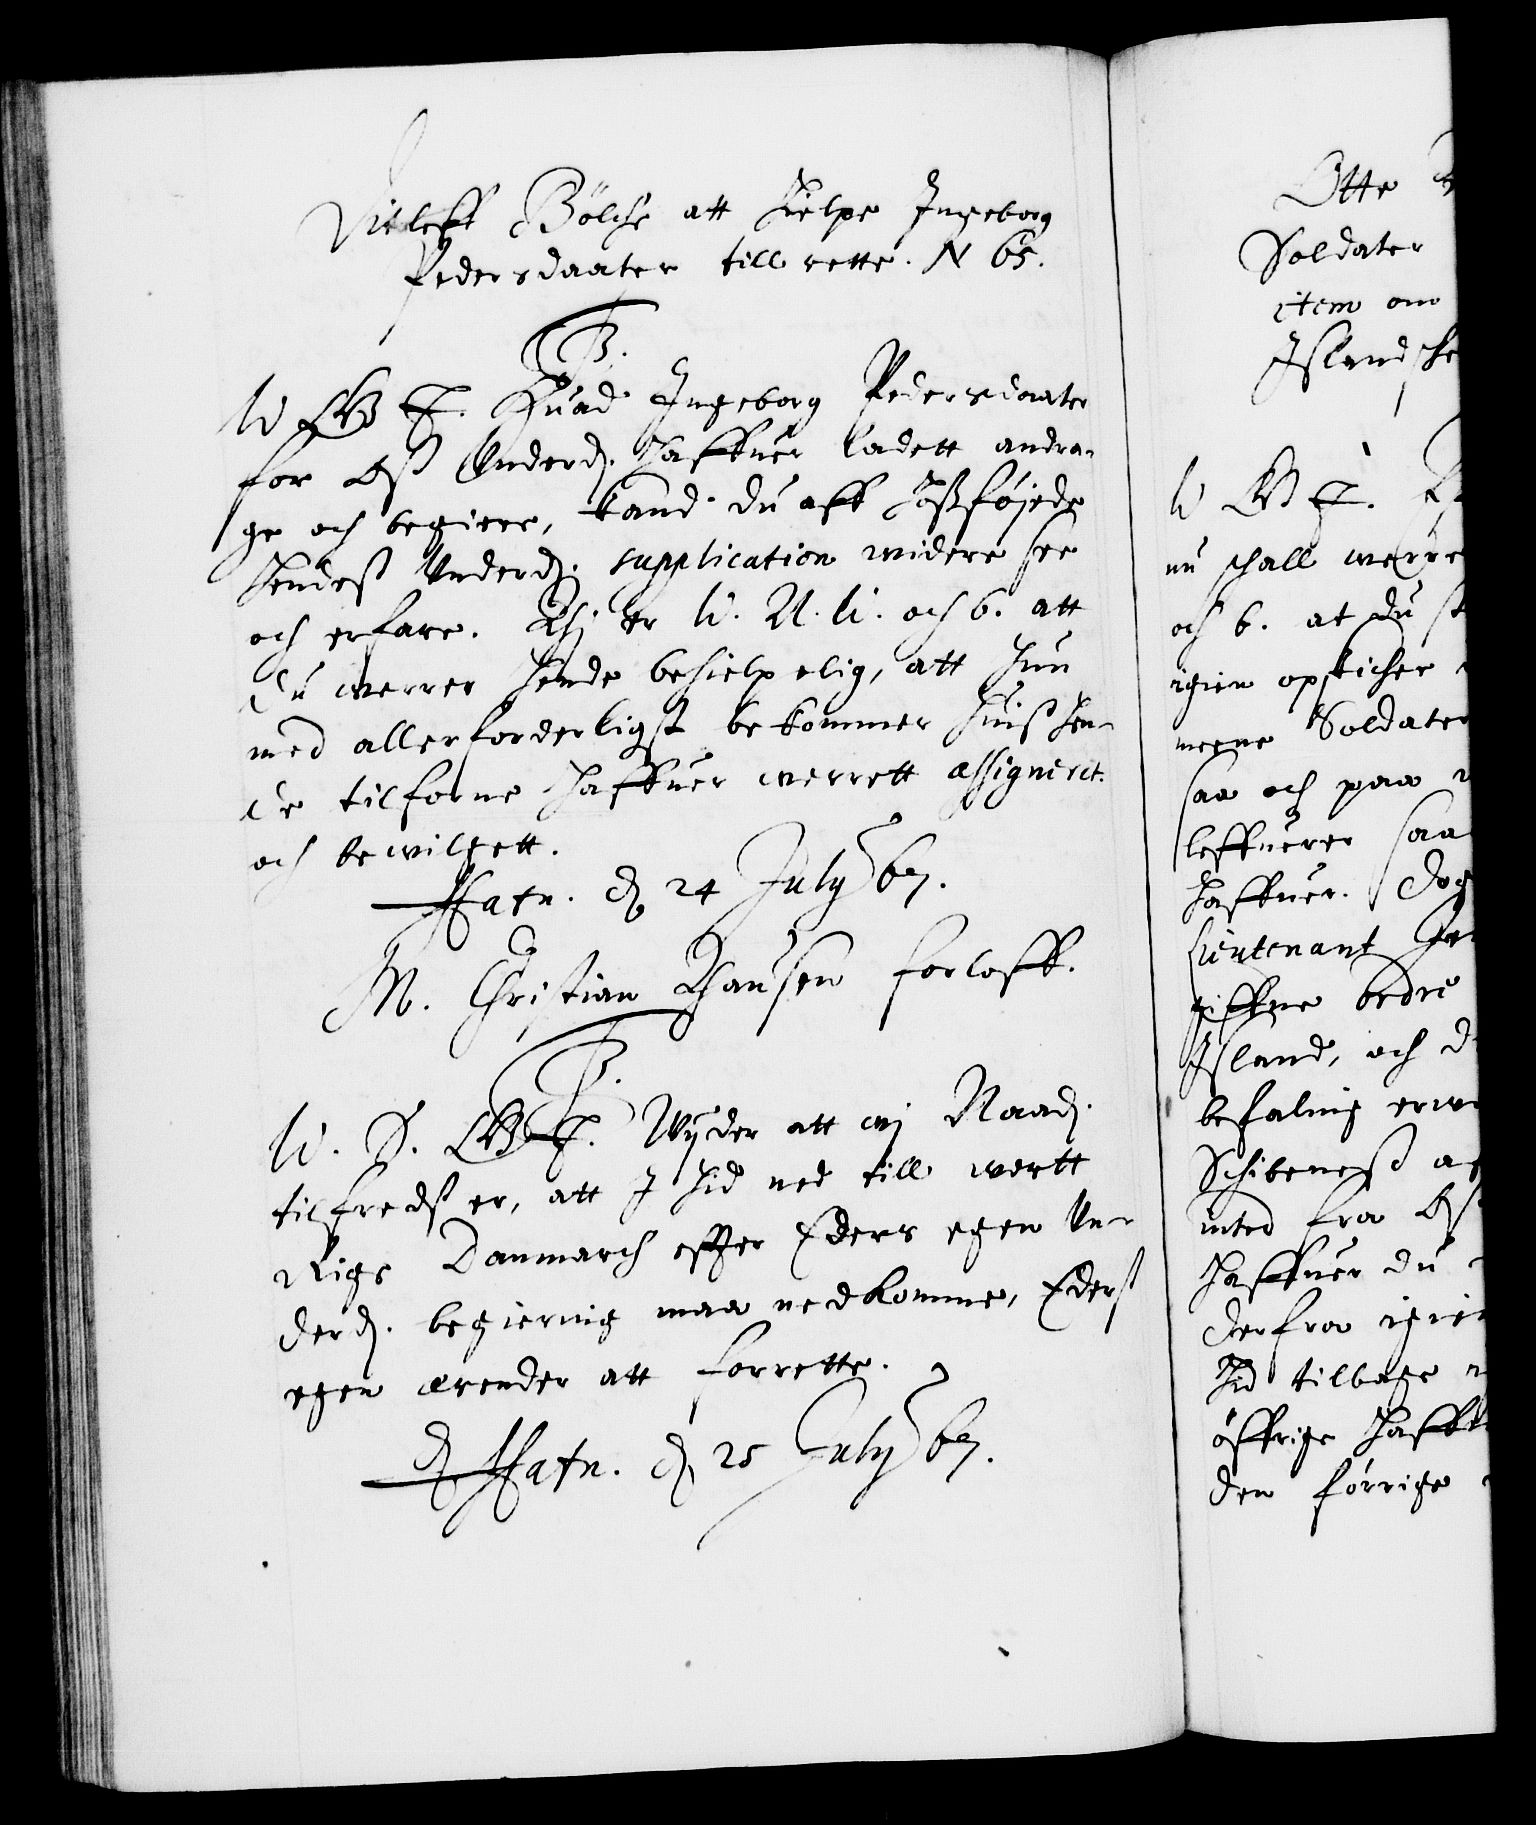 Ditleff Bölche att Hielpe Ingeborg
Pedersdaater till rette. N 65.
F 3.
W G B T. Huad Ingeborg Pedersdaater
for Oß Underd. Haffuer ladett andra-
ge och begiere, kand du aff Hoßföjede
Hendeß Underd. supplication widere see
och erfare. Thj er W. N. W. och b. att
du werrer Hende behielpelig, att Hun
med allerforderligst bekommer Huiß Hen-
de tilforne Haffuer werrett assigneret
och bewilgett.
Hafn. d. 24 July 67.
M. Christian Hansen forloff.
F 3.
W. S. G B T. Wijder att wj Naad.
tilfredß er, att I Hid ned till wortt
Rige Danmarch effter Eders egen Un-
derd. begiering maa nedkomme, Ederß
egen ærender att forrette.
Hafn. d. 25 July 67.
Otte
Soldater
item om
Islandsche
W G B T.
nu schall werre
och b. at du
igien opsticher
meene Soldater
saa och paa
leffuerer saa
Haffuer. Dog
Lieutenant
giffne ordre
Island, och
befaling
Schibeneß
inted fra Oß
Haffuer du
derfra igien
Hid tilbage
öffrige Haffu
den förrige